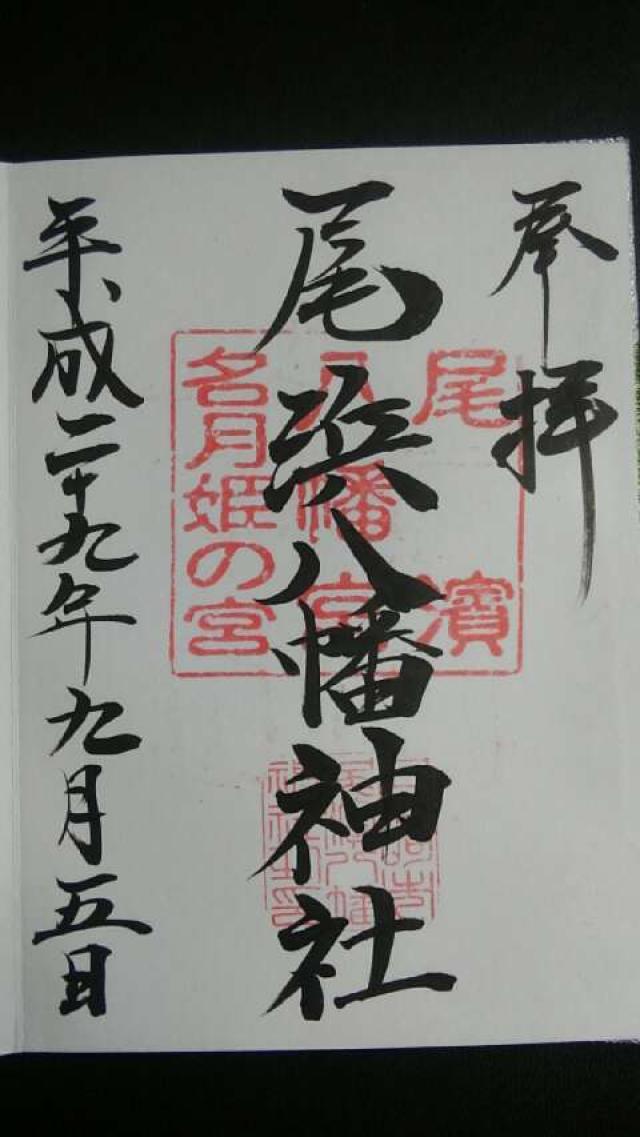 奉拝
尾浜八幡神社
平成二十九年九月五日
尾濱
八幡宮
名月姫の宮